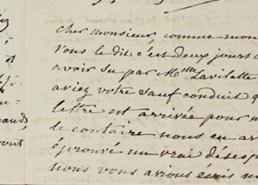 cher monsieur comme mon
Vous le dit c'est deux jours a
avoir su par Melle Lavilatte
aviez votre sauf conduit q
lettre est arrivée pour n
le contaire nous en av
éprouvé un vrai désesp
nous vous avions ecris n